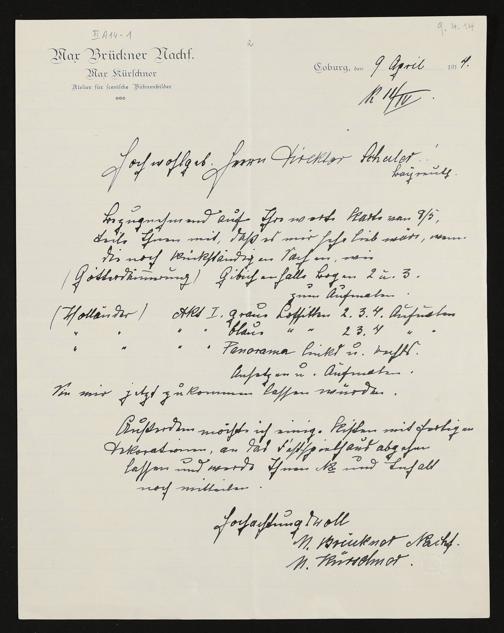 II A 14 - 1
9. 4. 14
2
Max Brückner Nachf.
Max Kürschner
Atelier für scenische Bühnenbilder
Coburg, den 9 April 1914.
14/IV.
Hochwohlgeb. Herrn Direktor Schuler!
Bayreuth.
Bezugnehmend auf Ihre werte Karte vom 8/5,
teile Ihnen mit, daß es mir sehr lieb wäre, wenn
die noch rückständigen Sachen, wie
(Götterdämmerung) Gibichenhalle Bogen 2 u. 3.
zum Aufmalen.
(Holländer) Akt I. graue Soffitten 2. 3. 4. Aufmalen
" " " " blaue " " 2 3. 4 " "
" " " " Panorama links u. rechts.
Ansetzen u. Aufmalen.
Sie mir jetzt zukommen lassen würden.
Außerdem möchte ich einige Kisten mit fertigen
Dekorationen, an das Festspielhaus abgehen
lassen und werde Ihnen No und Inhalt
noch mitteilen.
Hochachtungsvoll
M. Brückner Nachf.
M. Kürschner.